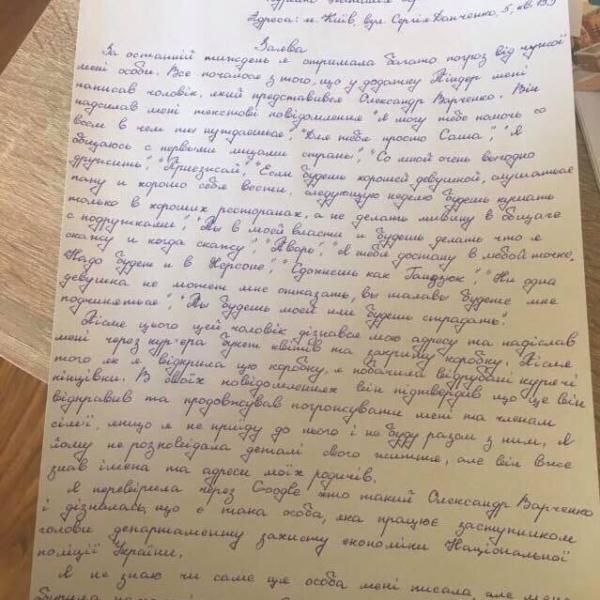 Адреса: м. Київ, вул. Сергія Данченко, 5, кв.
Заява
За останній тиждень я отримала багато погроз від чужої
мені особи. Все почалося з того, що у додатку Тіндер мені
написав чоловік, який представився Олександр Варченко. Він
надсилав мені текстові повідомлення "Я могу тебе помочь со
всем в чем ты нуждаешься", "Для тебя просто Саша", "Я
общаюсь с первыми лицами страны", "Со мной очень выгодно
дружить", "Приезжай", "Если будешь хорошей девушкой, слушаться
папу и хорошо себя вести, следующую неделю будешь кушать
только в хороших ресторанах, а не делать мивину в общаге
с подружками", "Ты в моей власти и будешь делать что я
скажу и когда скажу", "Я тебя достану в любой точке.
Надо будет и в Херсоне", "Сдохнешь как Гандзюк", "Ни одна
девушка не может мне отказать, вы шалавы будете мне
подчиняться", "Ты будешь моей или будешь страдать".
Після цього цей чоловік дізнався мою адресу та надіслав
мені через кур'єра букет квітів та закриту коробку. Після
того як я відкрила цю коробку, я побачила відрубані курячі
кінцівки. В своїх повідомленнях він підтвердив що це він
відправив та продовжував погрожувати мені та членам
сім'ї, якщо я не приїду до нього і не буду разом з ним. Я
йому не розповідала деталі свого життя, але він вже
знав імена та адреси моїх родичів.
Я перевірила через Google хто такий Олександр Варченко
і дізналась, що є така особа, яка працює заступником
голови департаменту захисту економіки Національної
поліції України.
Я не знаю чи саме ця особа мені писала, але мене